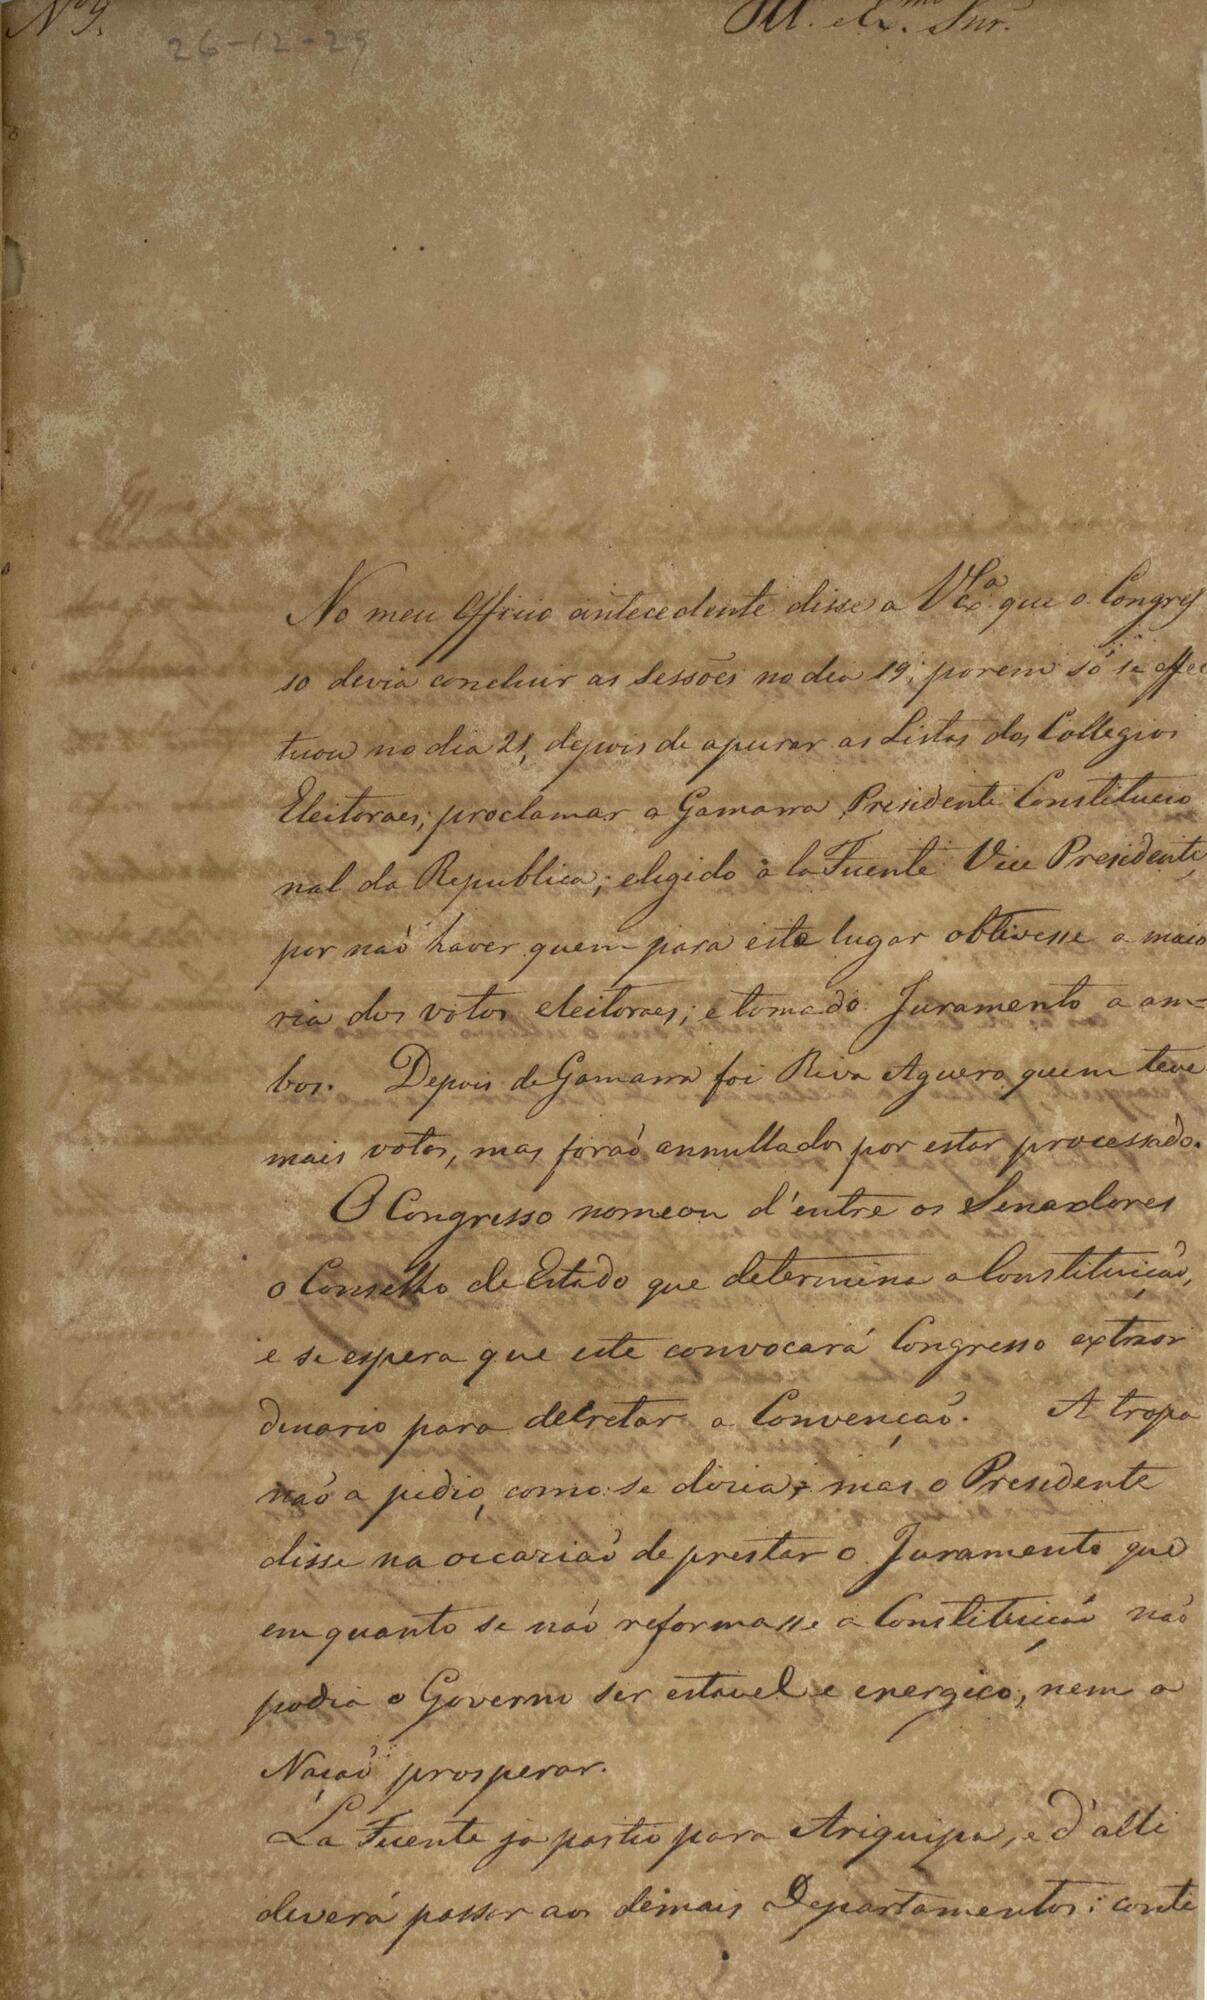 Nº 9.
Ill. e Ex.mo Snr.
26-12-29
No meu Officio antecedente disse a V. Ex.a que o Congres
so devia concluir as Sessões no dia 19; porem só se effec
tuou no dia 21, depois de apurar as Listas dos Collegios
Eleitoraes; proclamar a Gamarra Presidente Constitucio
nal da Republica; elegido a la Fuente Vice Presidente,
por naõ haver quem para este lugar obtivesse a maio
ria dos votos eleitoraes; e tomado Juramento a am=
bos. Depois de Gamarra foi Riva Aguero quem teve
mais votos, mas foraõ annullados por estar processado.
O Congresso nomeou d'entre os Senadores
o Conselho de Estado que determina a Constituiçaõ,
e se espera que este convocará Congresso extraor
dinario para decretar a Convençaõ. A tropa
naõ a pedio, como se dizia; mas o Presidente
disse na occaziaõ de prestar o Juramento que
em quanto se naõ reformasse a Constituiçaõ naõ
podia o Governo ser estavel e energico, nem a
Naçaõ prosperar.
La Fuente ja partio para Ariquipa, e d'alli
deverá passar aos demais Departamentos: conte